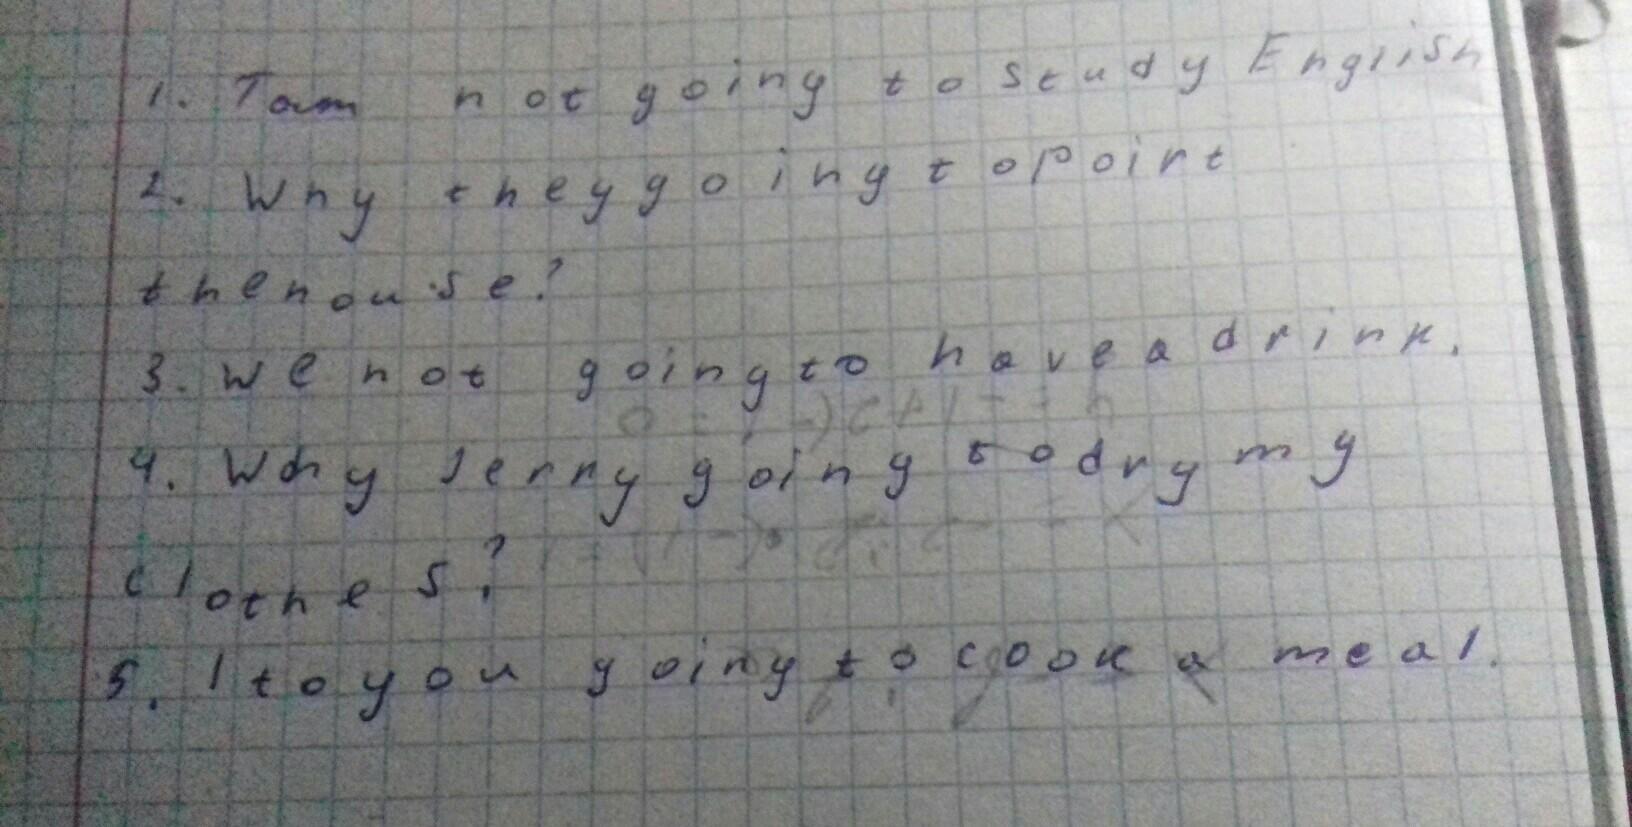 1. I am not going to study English
2. Why they going to point
the house?
3. We not going to have a drink.
4. Why Jenny going to dry my
clothes?
5. I to you going to cook a meal.